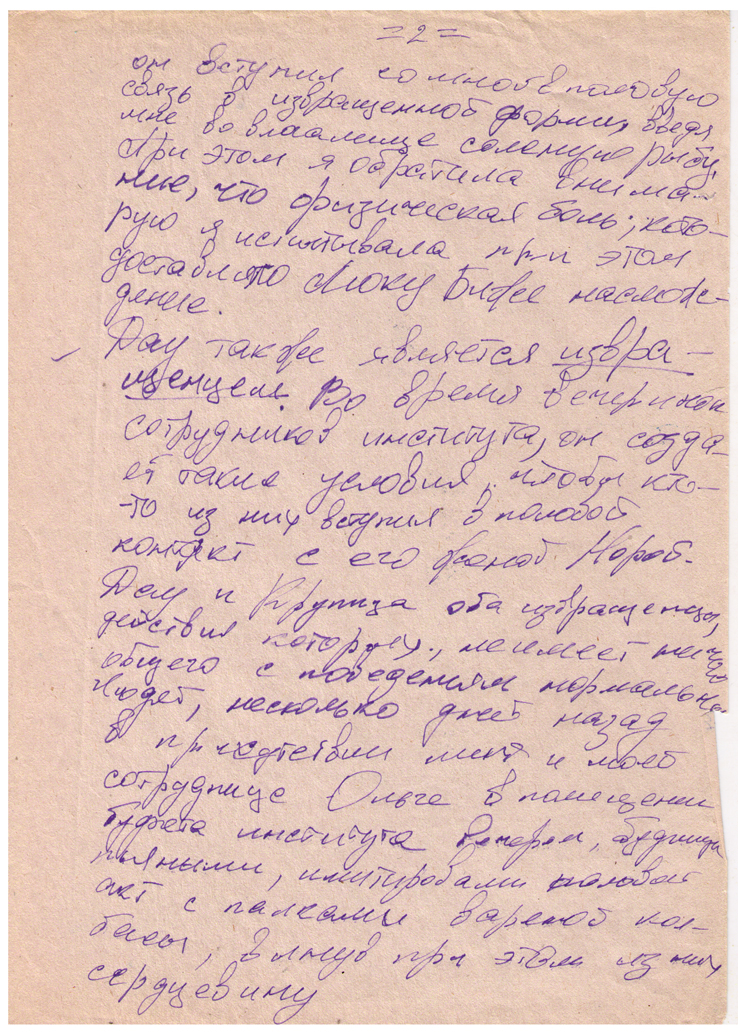 =2=
он вступил со мной в половую
связь в извращенной форми, введя
мне во влагалище соленую рыбу.
При этом я обратила внима-
ние, что физическая боль, кото-
рую я испытывала при этом
доставляло Люку более наслож-
дение.
Дау также является извра-
щенцем. Во время вечеринок
сотрудников института, он созда-
ёт такие условия, чтобы кто-
-то из них вступил в половой
контакт с его женой Норой.
Дау и Крупица оба извращенцы,
действия которых, не имеет ничего
общего с поведением нормальных
людей, несколько дней назад
в присутствии меня и моей
сотруднице Ольге в помещении
буфета института вечером, будучи
пьяными, имитировали половой
акт с палками вареной кол-
басы, при этом из них
сердцевину